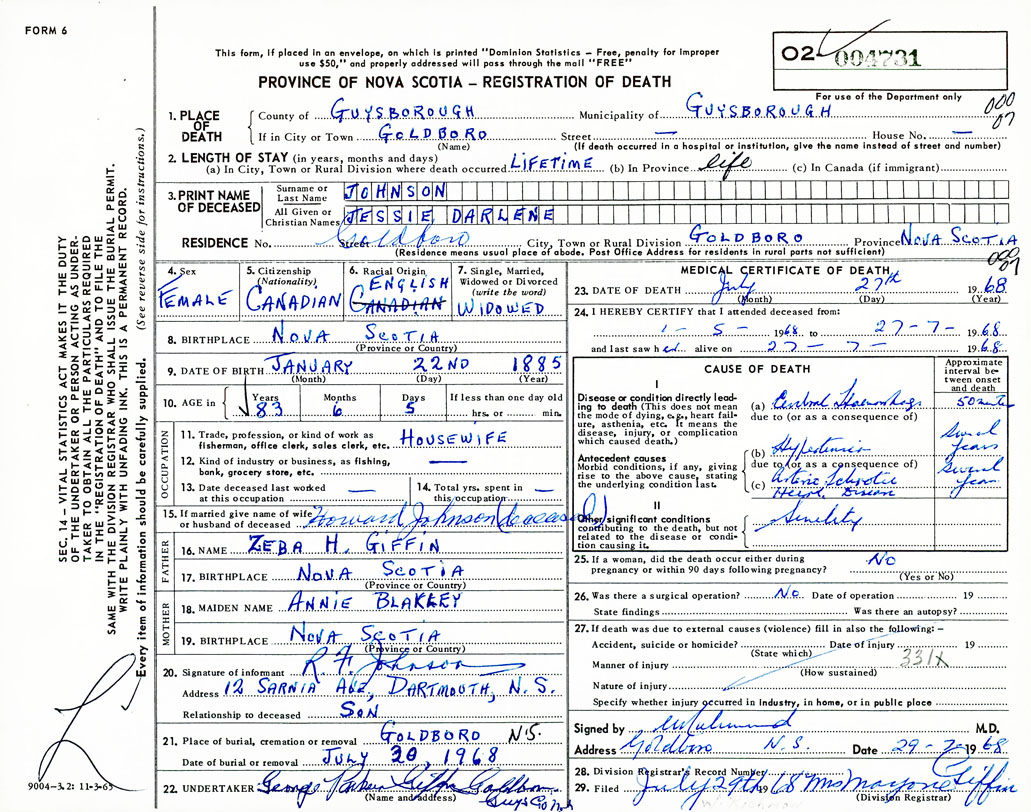 FORM 6
This form, if placed in an envelope, on which is printed "Dominion Statistics – Free, penalty for improper
use $50," and properly addressed will pass through the mail "FREE"
PROVINCE OF NOVA SCOTIA – REGISTRATION OF DEATH
02- 004731
For use of the Department only
000
07
1. PLACE OF DEATH
County of GUYSBOROUGH Municipality of GUYSBOROUGH
If in City or Town GOLDBORO Street — House No. —
(Name) (If death occurred in a hospital or institution, give the name instead of street and number)
2. LENGTH OF STAY (in years, months and days)
(a) In City, Town or Rural Division where death occurred LIFETIME (b) In Province life (c) In Canada (if immigrant)
3. PRINT NAME OF DECEASED
Surname or Last Name JOHNSON
All Given or Christian Names JESSIE DARLENE
RESIDENCE No. Street Goldboro City, Town or Rural Division GOLDBORO Province NOVA SCOTIA
(Residence means usual place of abode. Post Office Address for residents in rural parts not sufficient)
000
07
4. Sex
FEMALE
5. Citizenship
(Nationality)
CANADIAN
6. Racial Origin
ENGLISH
CANADIAN
7. Single, Married,
Widowed or Divorced
(write the word)
WIDOWED
8. BIRTHPLACE NOVA SCOTIA
(Province or Country)
9. DATE OF BIRTH JANUARY 22ND 1885
(Month) (Day) (Year)
10. AGE in Years Months Days If less than one day old
83 6 5 hrs. or min.
OCCUPATION
11. Trade, profession, or kind of work as
fisherman, office clerk, sales clerk, etc. HOUSEWIFE
12. Kind of industry or business, as fishing,
bank, grocery store, etc. —
13. Date deceased last worked
at this occupation —
14. Total yrs. spent in
this occupation —
15. If married give name of wife
or husband of deceased Howard Johnson (Deceased)
FATHER
16. NAME ZEBA H. GIFFIN
17. BIRTHPLACE NOVA SCOTIA
(Province or Country)
MOTHER
18. MAIDEN NAME ANNIE BLAKLEY
19. BIRTHPLACE NOVA SCOTIA
(Province or Country)
20. Signature of informant R. F. Johnson
Address 12 SARNIA AVE, DARTMOUTH, N.S.
Relationship to deceased SON
21. Place of burial, cremation or removal GOLDBORO N.S.
Date of burial or removal JULY 30, 1968
22. UNDERTAKER George Parker Giffin Goldboro
(Name and address) Guys Co N.S.
MEDICAL CERTIFICATE OF DEATH
23. DATE OF DEATH July 27th 1968
(Month) (Day) (Year)
24. I HEREBY CERTIFY that I attended deceased from:
1 - 5 - 1968 to 27 - 7 - 1968
and last saw her alive on 27 - 7 - 1968
CAUSE OF DEATH
Approximate
interval be-
tween onset
and death
I
Disease or condition directly lead-
ing to death (This does not mean
the mode of dying, e.g., heart fail-
ure, asthenia, etc. It means the
disease, injury, or complication
which caused death.)
(a) Cerebral Haemorrhage
due to (or as a consequence of)
Antecedent causes
Morbid conditions, if any, giving
rise to the above cause, stating
the underlying condition last.
(b) Hypertension Several years
due to (or as a consequence of)
(c) Arterio Sclerotic Several years
Heart Disease
II
Other significant conditions
contributing to the death, but not
related to the disease or condi-
tion causing it.
Senility
25. If a woman, did the death occur either during
pregnancy or within 90 days following pregnancy? No
(Yes or No)
26. Was there a surgical operation? No Date of operation 19
State findings Was there an autopsy?
27. If death was due to external causes (violence) fill in also the following: –
Accident, suicide or homicide? Date of injury 19
(State which)
331X
Manner of injury
(How sustained)
Nature of injury
Specify whether injury occurred in Industry, in home, or in public place
Signed by M.D.
Address Goldboro N.S. Date 29-7-1968
28. Division Registrar's Record Number
29. Filed July 29th 1968 Mrs Marjorie Giffin
(Division Registrar)
SEC. 14 – VITAL STATISTICS ACT MAKES IT THE DUTY
OF THE UNDERTAKER OR PERSON ACTING AS UNDER-
TAKER TO OBTAIN ALL THE PARTICULARS REQUIRED
IN THE "REGISTRATION OF DEATH" AND TO FILE THE
SAME WITH THE DIVISION REGISTRAR WHO SHALL ISSUE THE BURIAL PERMIT.
WRITE PLAINLY WITH UNFADING INK. THIS IS A PERMANENT RECORD.
Every item of information should be carefully supplied. (See reverse side for instructions.)
9004-3.2: 11-3-65